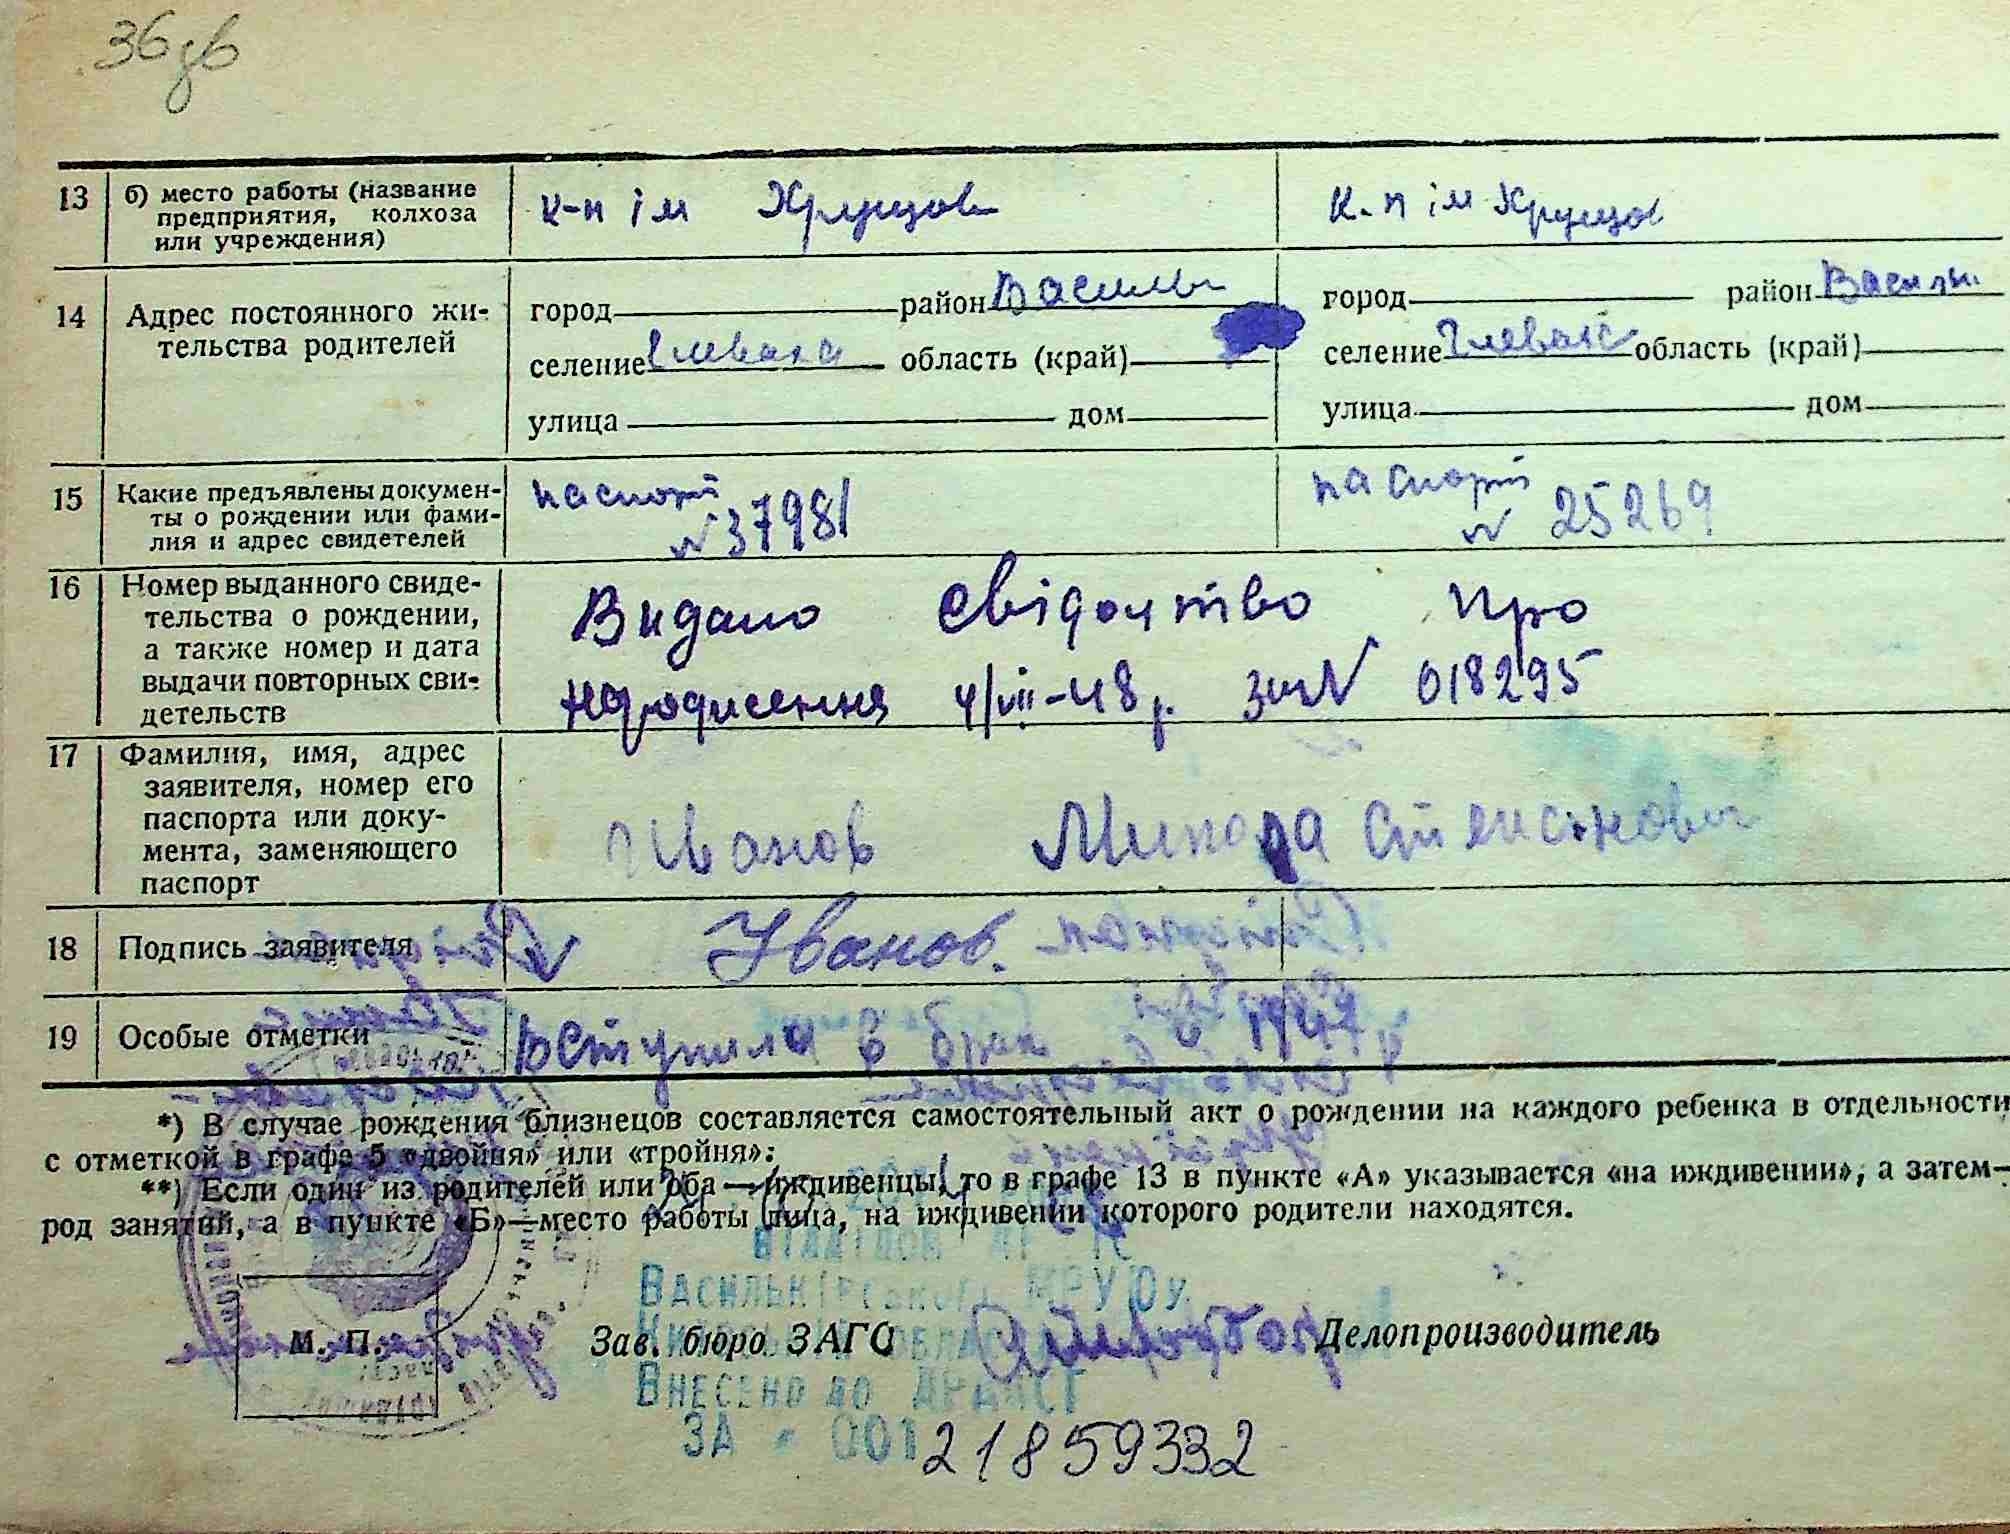 36 зв
13 б) место работы (название предприятия, колхоза или учреждения) к-п ім Хрущов к-п ім Хрущов
14 Адрес постоянного жительства родителей
город район Васильк город район Васильк.
селение Глеваха область (край) селение Глеваха область (край)
улица дом улица дом
15 Какие предъявлены документы о рождении или фамилия и адрес свидетелей паспорт паспорт
№ 37981 № 25269
16 Номер выданного свидетельства о рождении, а также номер и дата выдачи повторных свидетельств
Видано свідоцтво про
народження 4/VII-48 р. за № 018295
17 Фамилия, имя, адрес заявителя, номер его паспорта или документа, заменяющего паспорт
Иванов Микола Степанович
18 Подпись заявителя Иванов.
19 Особые отметки вступила в брак в
*) В случае рождения близнецов составляется самостоятельный акт о рождении на каждого ребенка в отдельности
с отметкой в графе 5 «двойня» или «тройня».
**) Если один из родителей или оба — иждивенцы, то в графе 13 в пункте «А» указывается «на иждивении», а затем—
род занятий, а в пункте «Б»—место работы лица, на иждивении которого родители находятся.
Васильківського МРУЮ
М. П. Зав. бюро ЗАГС Делопроизводитель
Внесено до ДРАЦСГ
ЗА № 00121859332